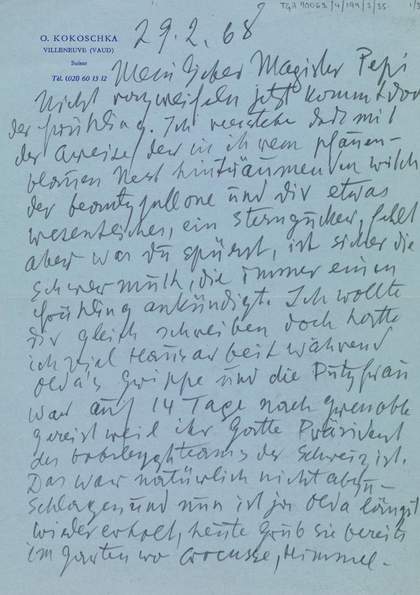 TGA 90063/4/199/2/35
O. KOKOSCHKA
VILLENEUVE (VAUD)
Suisse
Tél. (021) 60 13 12
29.2.68
Mein lieber Magister Pepi
Nicht verzweifeln jetzt kommt doch
der Frühling. Ich verstehe daß mit
der Abreise der in ihrem pfauen-
blauen Nest hinträumenden
der und dir etwas
wesentliches, ein Sterngucker, fehlt
aber was du spürst, ist sicher die
Schwermuth, die immer einen
Frühling ankündigt. Ich wollte
dir gleich schreiben doch hatte
ich viel Hausarbeit während
Olda's Grippe und die Putzfrau
war auf 14 Tage nach Grenoble
gereist weil ihr Gatte Präsident
des bobsleyghteams der Schweiz ist.
Das war natürlich nicht abzu-
schlagen und nun ist ja Olda längst
wieder erholt, heute grub sie bereits
im Garten wo Crocusse, Himmel-